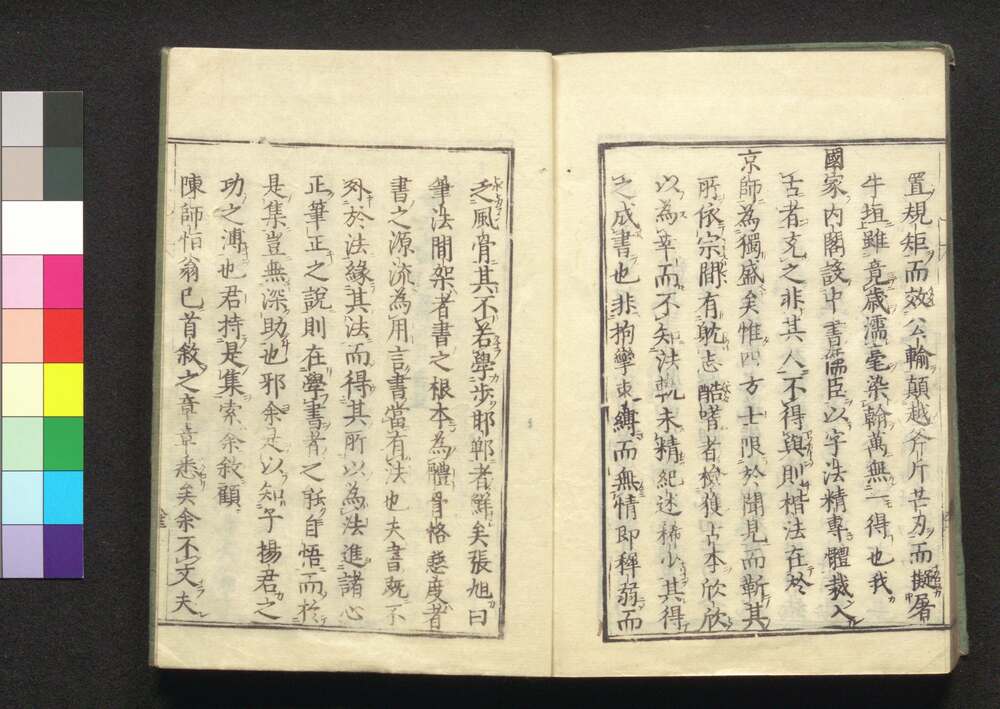 置規矩而效公輸顛越斧斤芒刃而擬屠
牛垣雖竟歳濡毫染翰萬無一得也我
國家内閣諸中書儒臣以字法精專體裁入
古者充之非其人不得與則楷法在於
京師為獨盛矣惟四方士限於聞見而靳其
所依宗間有耽志酷嗜者檢獲古本欣欣
以為幸而不知法執未精紀述稀少其得
之成書也非拘攣束縛而無情即穉弱而
乏風骨其不若學歩邯鄲者鮮矣張旭曰
筆法間架者書之根本為體骨恪慈度者
書之源流為用言書當有法也夫書既不
外於法緣其法而得其所以為法進諸心
正筆正之說則在學書者之自悟而於
是集豈無深助也邪余足以知子揚君之
功之溥也君持是集索余敘顧
陳師怡翁已首敘之章章悉矣余不文夫